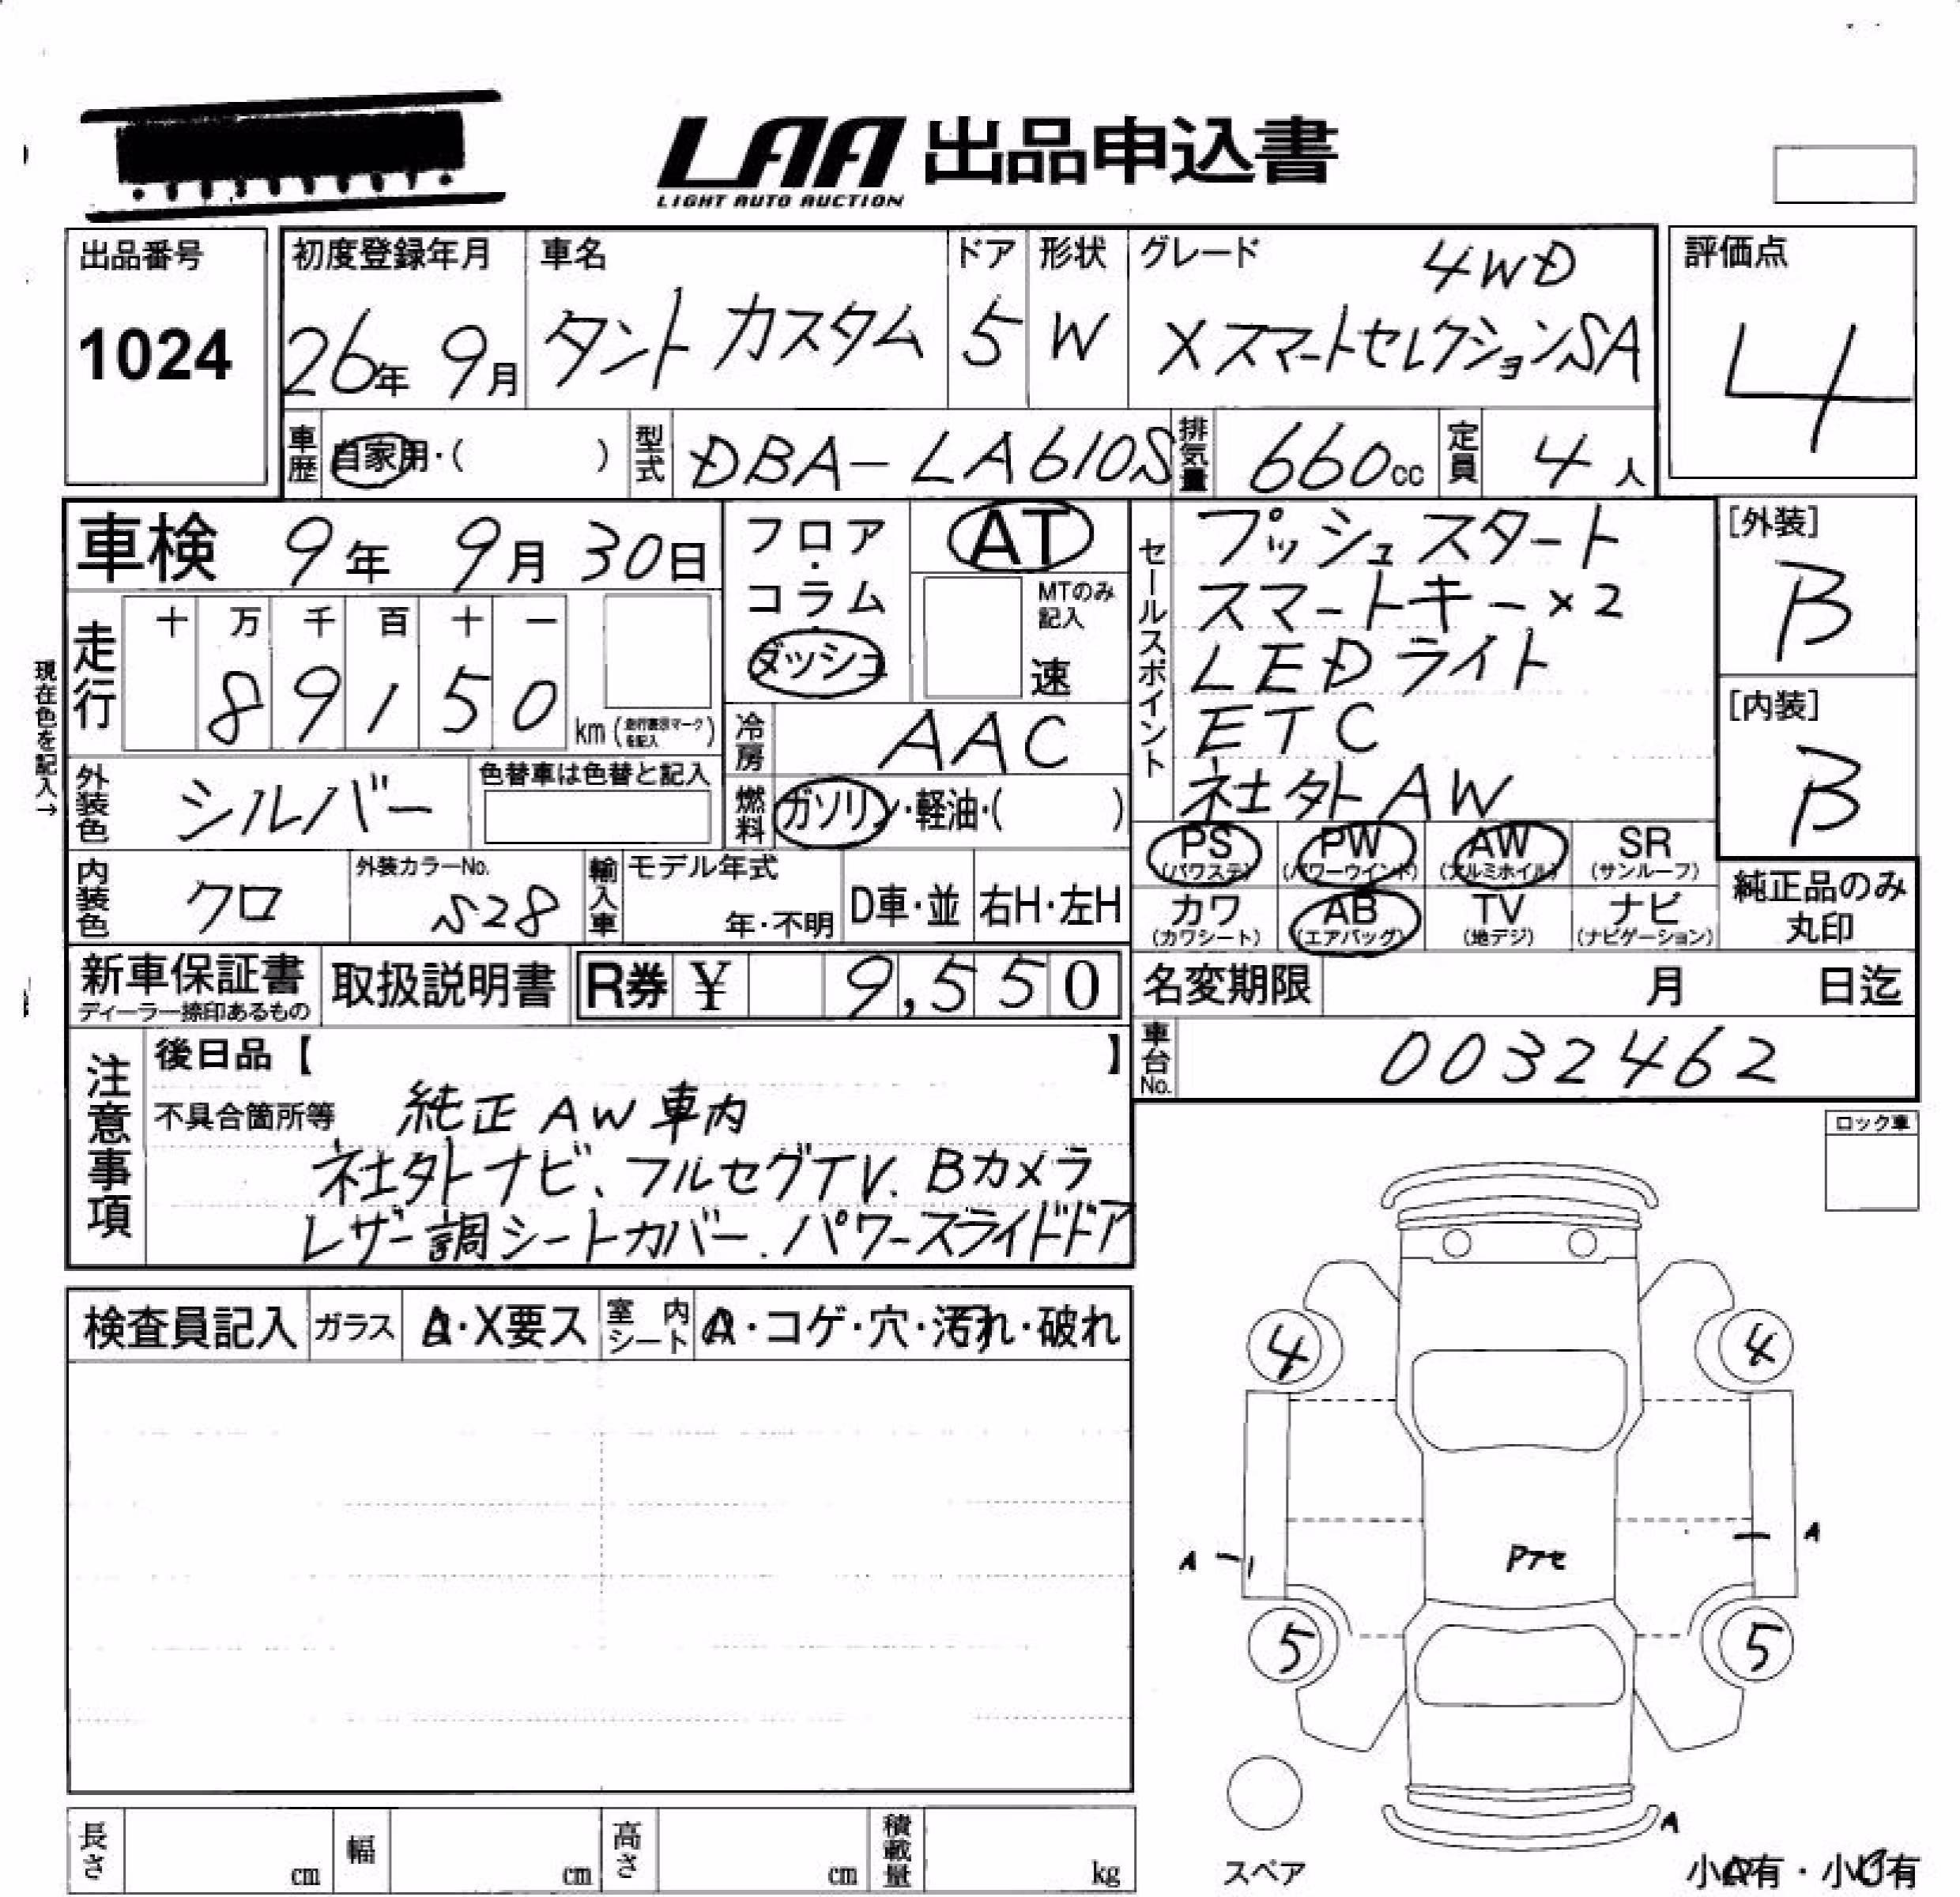 LAA 出品申込書
LIGHT AUTO AUCTION
出品番号
1024
初度登録年月
26年 9月
車名
タント カスタム
ドア
5
形状
W
グレード 4WD
XスマートセレクションSA
評価点
4
車歴 自家用・( )
型式 DBA-LA610S
排気量 660cc
定員 4人
車検 9年 9月 30日
フロア・コラム・ダッシュ
AT
MTのみ記入
速
走行
十 万 千 百 十 一
8 9 1 5 0 km (走行表示マークを記入)
現在色を記入→
冷房 AAC
外装色 シルバー
色替車は色替と記入
燃料 ガソリン・軽油・( )
内装色 クロ
外装カラーNo.
S28
輸入車
モデル年式
年・不明
D車・並
右H・左H
セールスポイント
プッシュスタート
スマートキー×2
LEDライト
ETC
社外AW
[外装]
B
[内装]
B
PS (パワステ)
PW (パワーウインド)
AW (アルミホイル)
SR (サンルーフ)
カワ (カワシート)
AB (エアバッグ)
TV (地デジ)
ナビ (ナビゲーション)
純正品のみ
丸印
新車保証書
ディーラー捺印あるもの
取扱説明書
R券 ¥ 9,550
名変期限 月 日迄
車台No. 0032462
注意事項
後日品【 】
不具合箇所等 純正AW車内
社外ナビ、フルセグTV.Bカメラ
レザー調シートカバー.パワースライドドア
ロック車
検査員記入
ガラス
A・X要ス
室内シート
A・コゲ・穴・汚れ・破れ
4
4
A
A
Pアセ
5
5
A
スペア
小A有・小B有
長さ cm
幅 cm
高さ cm
積載量 kg